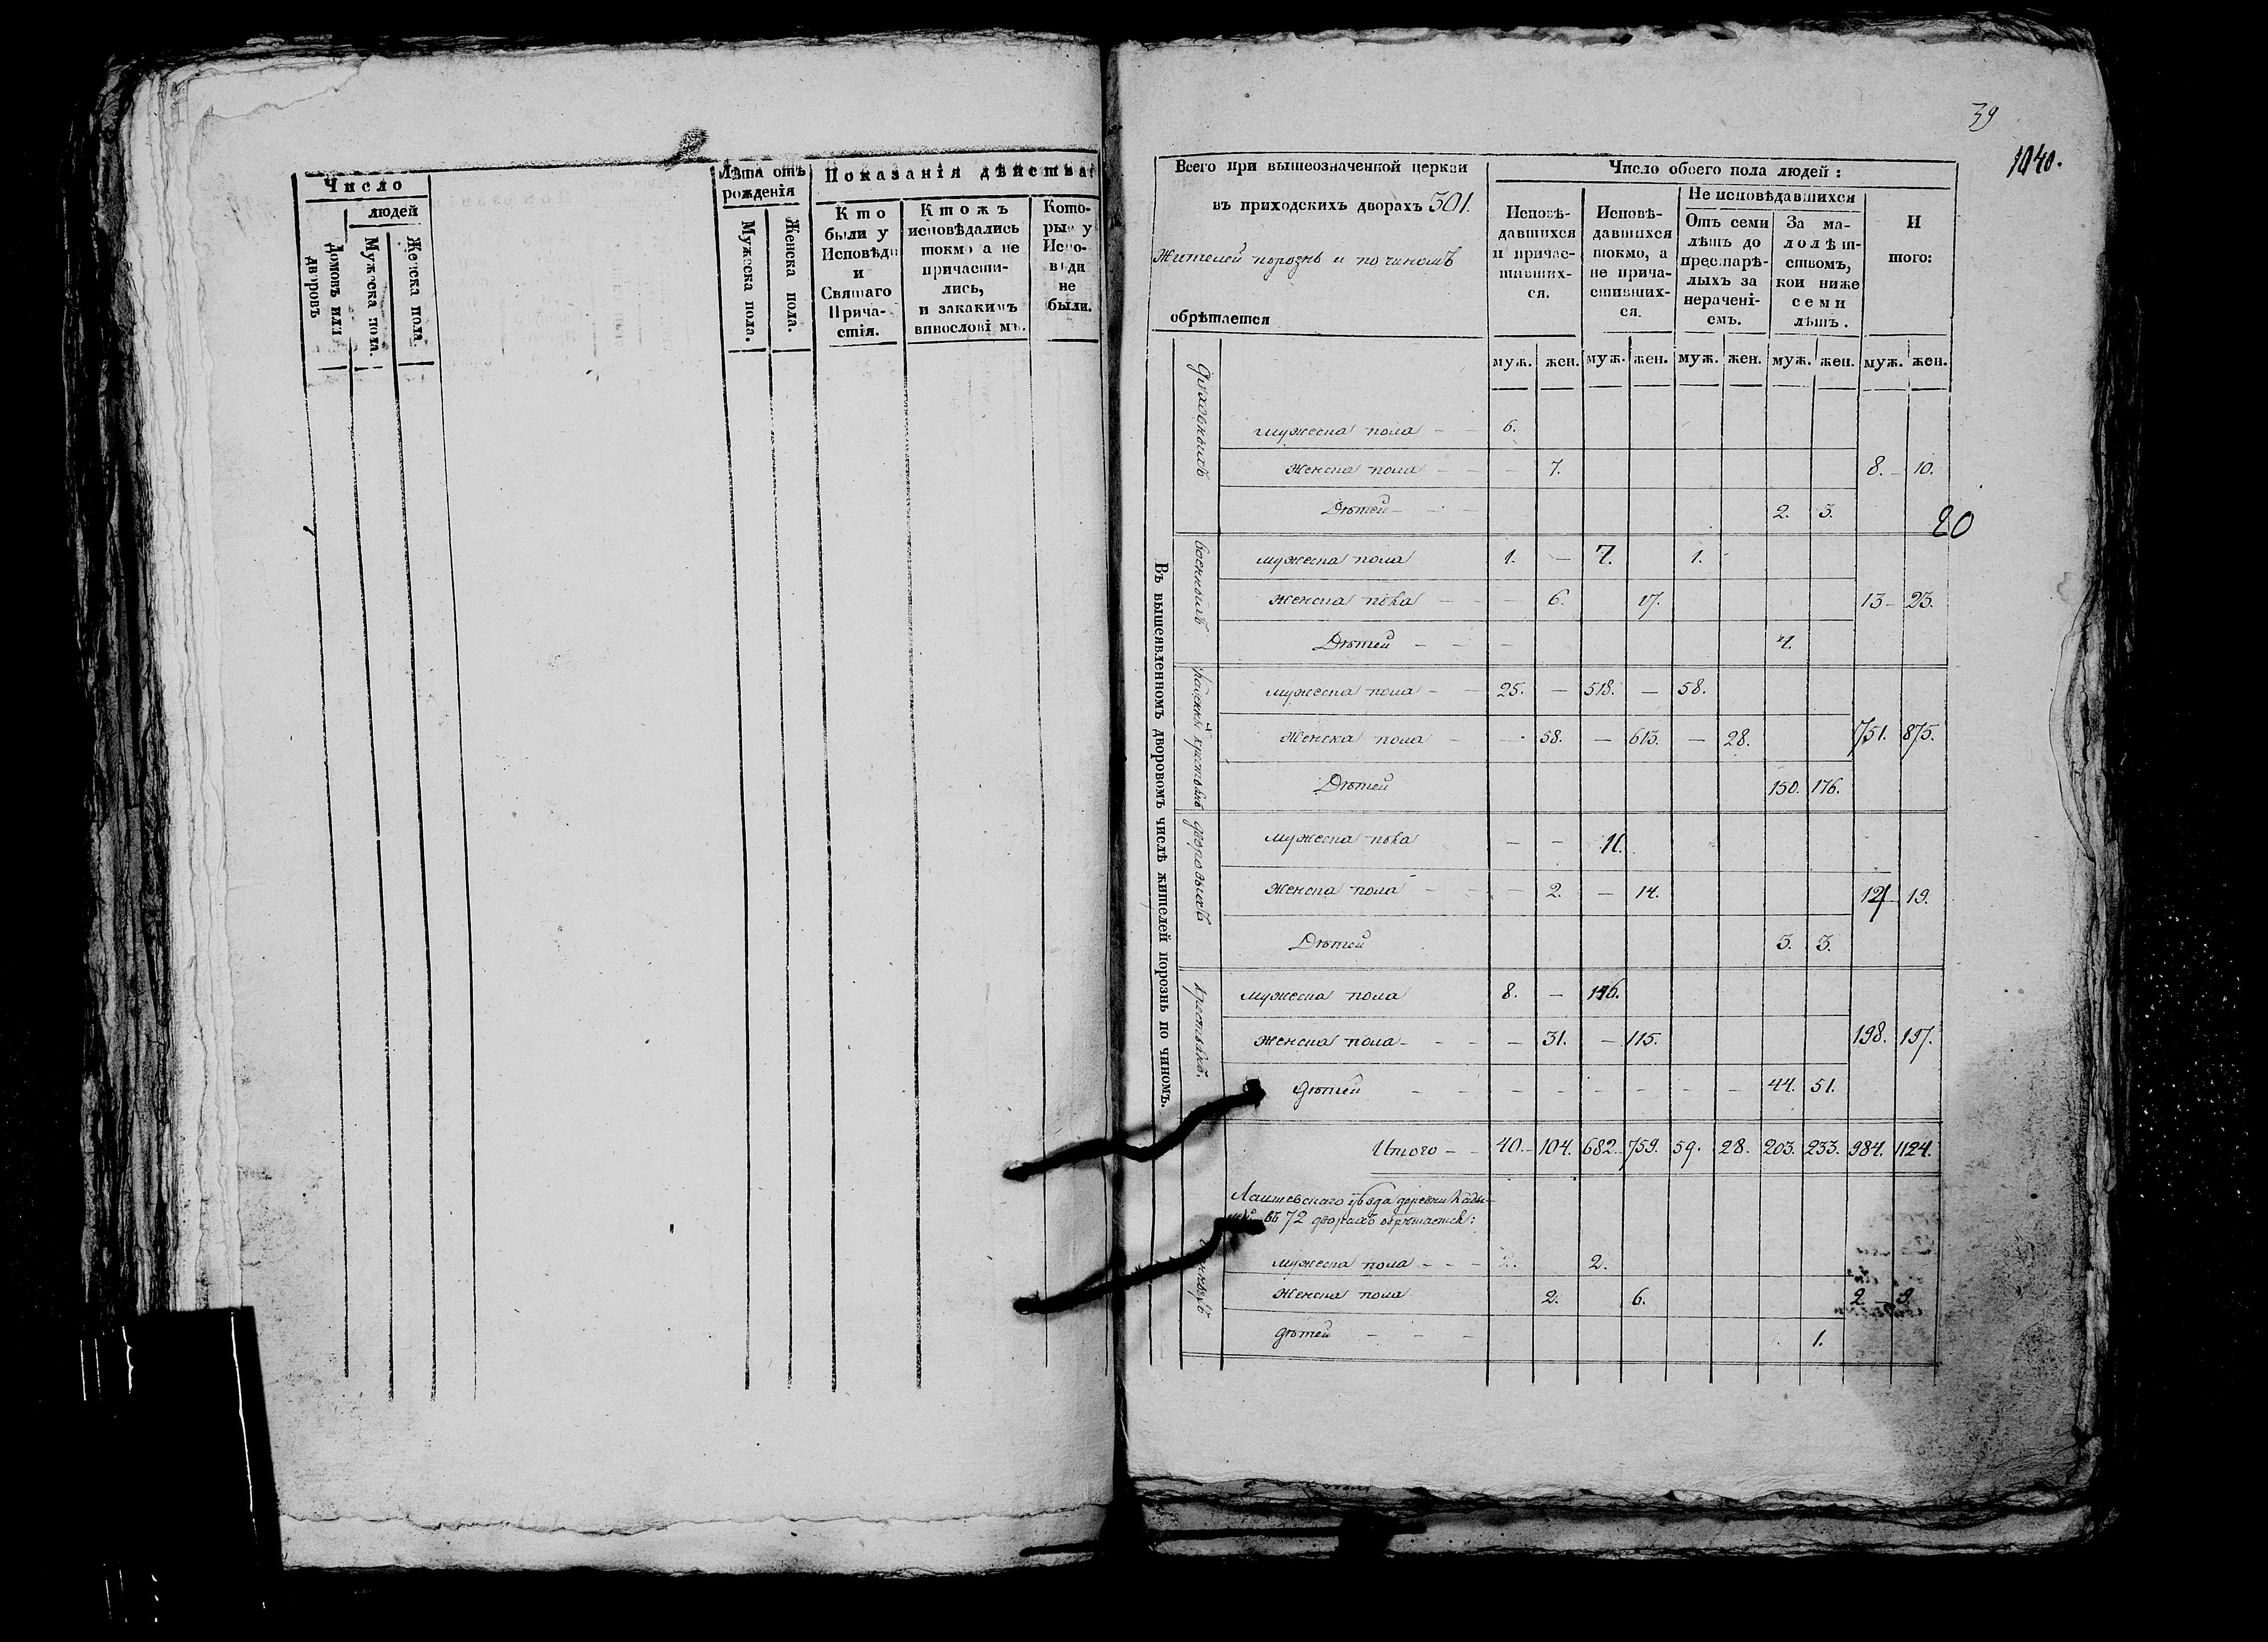 Число
людей
Домовъ или дворовъ
Мужеска пола.
Женска пола.
Лѣта отъ рожденія
Мужеска пола.
Женска пола.
Показанія дѣйства
Кто
были у
Исповѣди
и
Святаго
Прича-
стія.
Ктожъ
исповѣдались
токмо а не
причасти-
лись,
и закакимъ
винословіемъ.
Кото-
рые у
Испо-
вѣди
не
были.
39
1040.
Всего при вышеозначенной церкви
въ приходскихъ дворахъ 301.
Жителей порознь и по чиномъ
обрѣтается
Число обоего пола людей:
Исповѣ-
давшихся
и причас-
тивших-
ся.
Исповѣ-
давшихся
токмо, а
не прича-
стивших-
ся.
Не исповѣдавшихся
Отъ семи
лѣтъ до
престарѣ-
лыхъ за
нерачені-
емъ.
За ма-
лолѣт-
ствомъ,
кои ниже
семи
лѣтъ.
И
того:
муж. жен. муж. жен. муж. жен. муж. жен. муж. жен.
Въ вышеявленномъ дворовомъ числѣ жителей порознь по чиномъ.
мужеска пола - - 6.
Женска пола - - - 7. 8. - 10.
Дѣтей - - - 2. 3.
20
военныхъ
мужеска пола 1. - 7. 1. -
женска пола - - 6. 17. 13 - 23.
Дѣтей - - - 4.
крестьянъ
мужеска пола - - 25. - 518. - 58.
Женска пола - - 58. - 613. - 28. 751. 875.
Дѣтей 150. 176.
дворовыхъ
мужеска пола - - 11.
Женска пола - - - 2. - 14. 19.
Дѣтей 3. 3.
крестьянъ.
мужеска пола 8. - 146.
Женска пола - - - - 31. - 115. 198. 197.
дѣтей - - - - - - - - 44. 51.
Итого - - 40. - 104. 682. 759. 59. 28. 203. 233. 984. 1124.
Лаишевскаго уѣзда деревни
въ 72 дворахъ обрѣтается:
мужеска пола - - - 2. 2.
Женска пола 2. 6. 2 - 9.
дѣтей - - - 1.